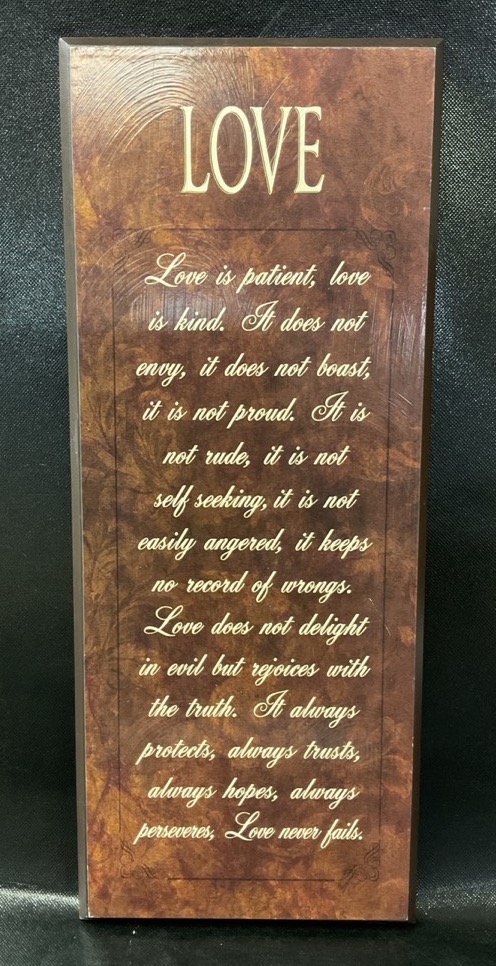 LOVE
Love is patient, love
is kind. It does not
envy, it does not boast,
it is not proud. It is
not rude, it is not
self seeking, it is not
easily angered, it keeps
no record of wrongs.
Love does not delight
in evil but rejoices with
the truth. It always
protects, always trusts,
always hopes, always
perseveres, Love never fails.